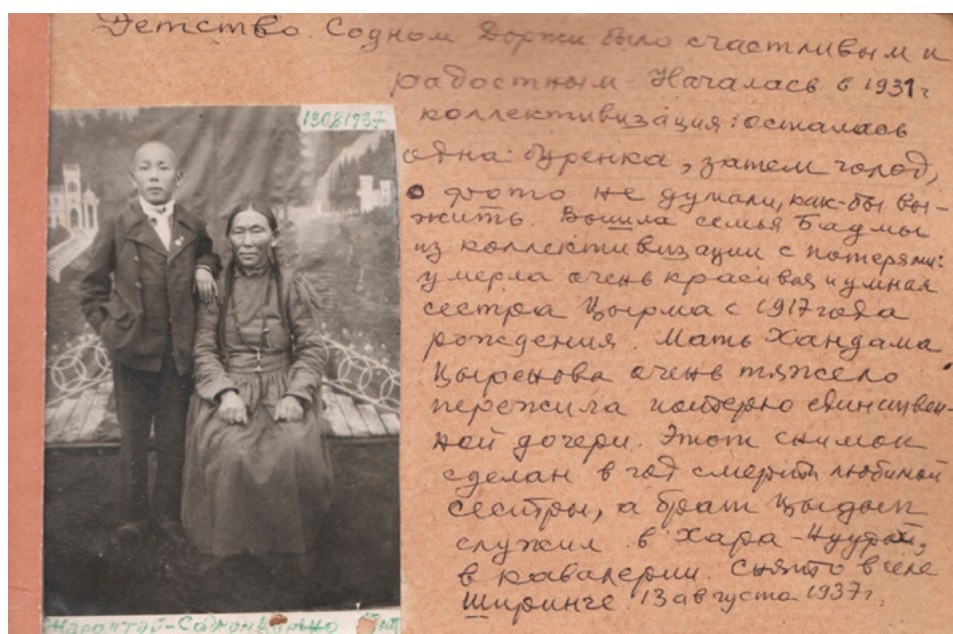 Детство Содном Доржи было счастливым и
радостным. Началась в 1931 г
коллективизация: осталась
одна буренка, затем голод,
о фото не думали, как-бы вы-
жить. Вышла семья Бадмы
из коллективизации с потерями:
умерла очень красивая и умная
сестра Цырма с 1917 года
рождения. Мать Хандама
Цыренова очень тяжело
пережила потерю единствен-
ной дочери. Этот снимок
сделан в год смерти любимой
сестры, а брат Цыдып
служил в Хара-
в кавалерии. Снято в селе
Ширинге 13 августа 1937 г.
1937